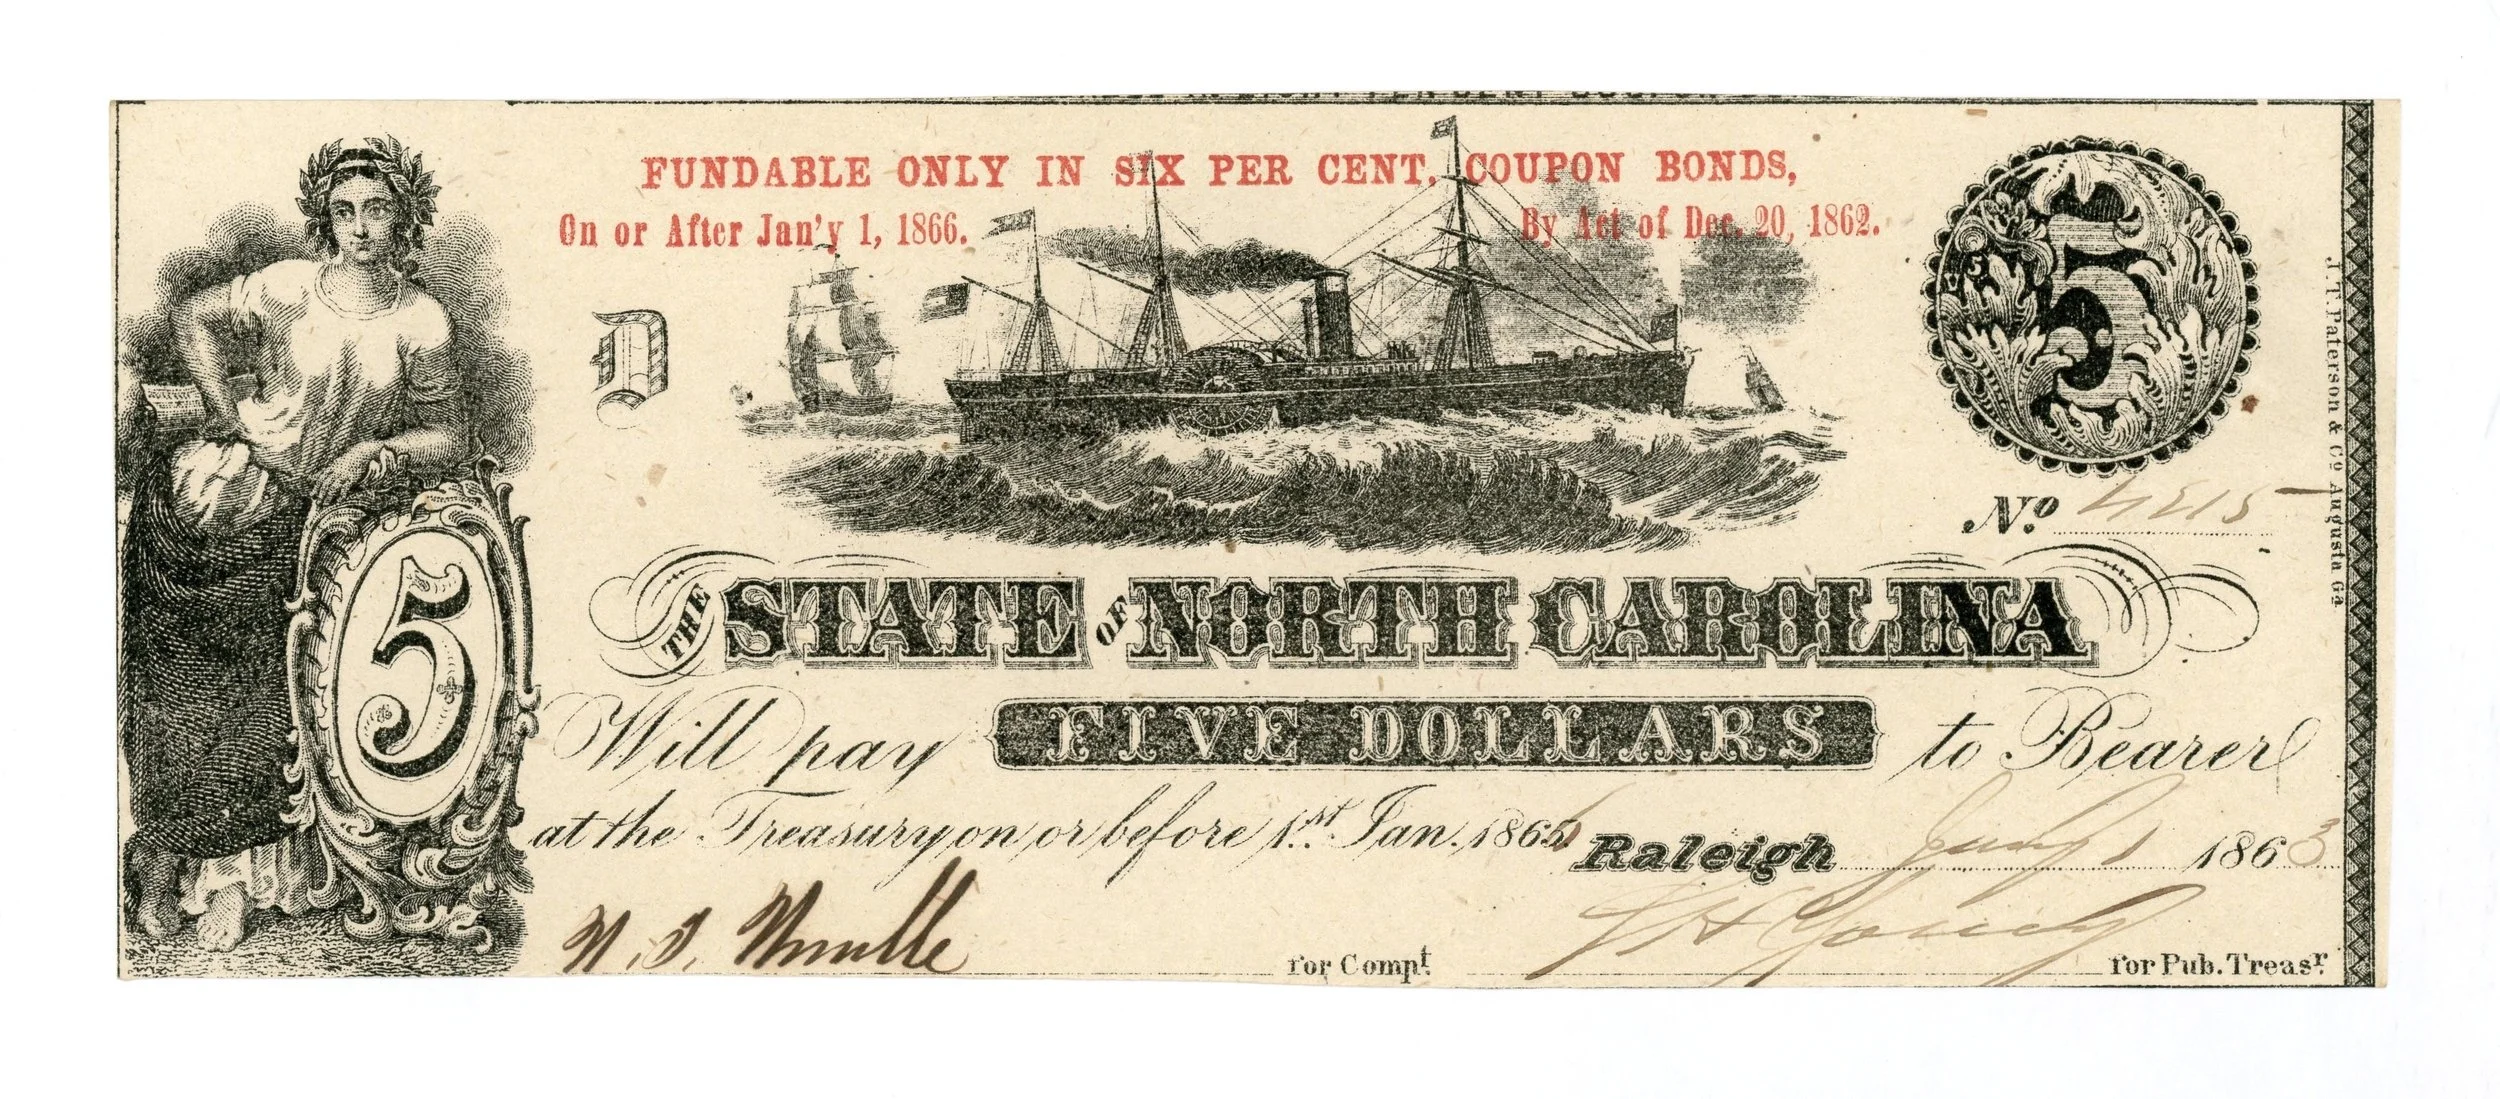 FUNDABLE ONLY IN SIX PER CENT. COUPON BONDS,
On or After Jan'y 1, 1866. By Act of Dec. 20, 1862.
D
5
5
No
THE STATE OF NORTH CAROLINA
Will pay FIVE DOLLARS to Bearer
at the Treasury on or before 1st Jan. 1866 Raleigh July 1 1863
for Compt.
for Pub. Treasr.
J. T. Paterson & Co Augusta Ga